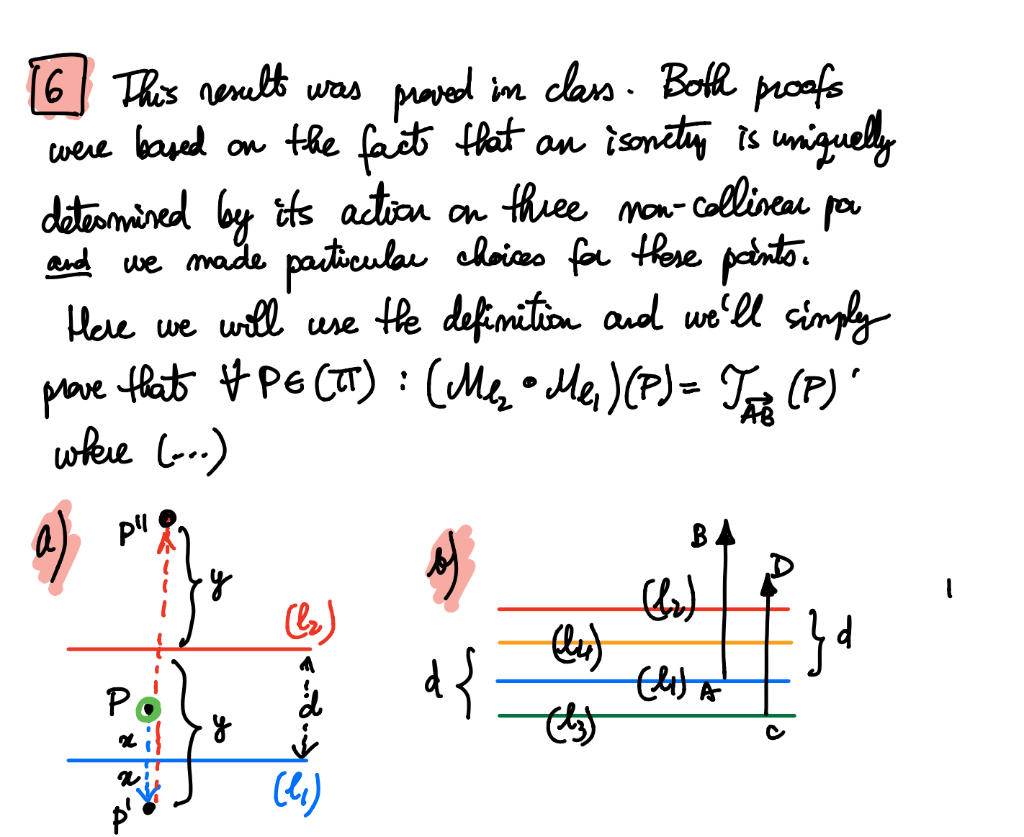 6 This result was proved in class. Both proofs
were based on the fact that an isometry is uniquely
determined by its action on three non-collinear po
and we made particular choices for these points.
Here we will use the definition and we'll simply
prove that ∀ P∈(π) : (Mℓ₂ ∘ Mℓ₁)(P) = T_AB→ (P)
where (...)
a)
P''
y
(ℓ₂)
P
x
y
d
x
P'
(ℓ₁)
b)
B
D
(ℓ₂)
(ℓ₄)
d
d
(ℓ₁) A
(ℓ₃)
C